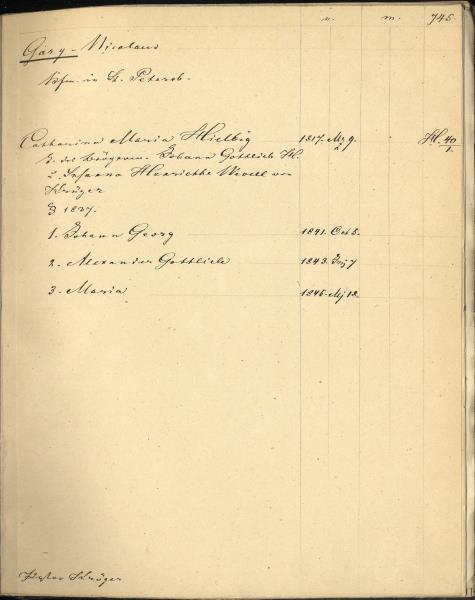 n. m. 745.
Gary - Nicolaus
Kfm. in St. Petersb.
Catharina Maria Hielbig 1817. Mz 9. H. 40/1.
T. des Bürgerm. Johann Gottlieb H.
u. Johanna Henriette
Krüger
1837.
1. Johann Georg 1841. Oct 5.
2. Alexander Gottlieb 1843. 7
3. Maria 1845. 12
Krüger